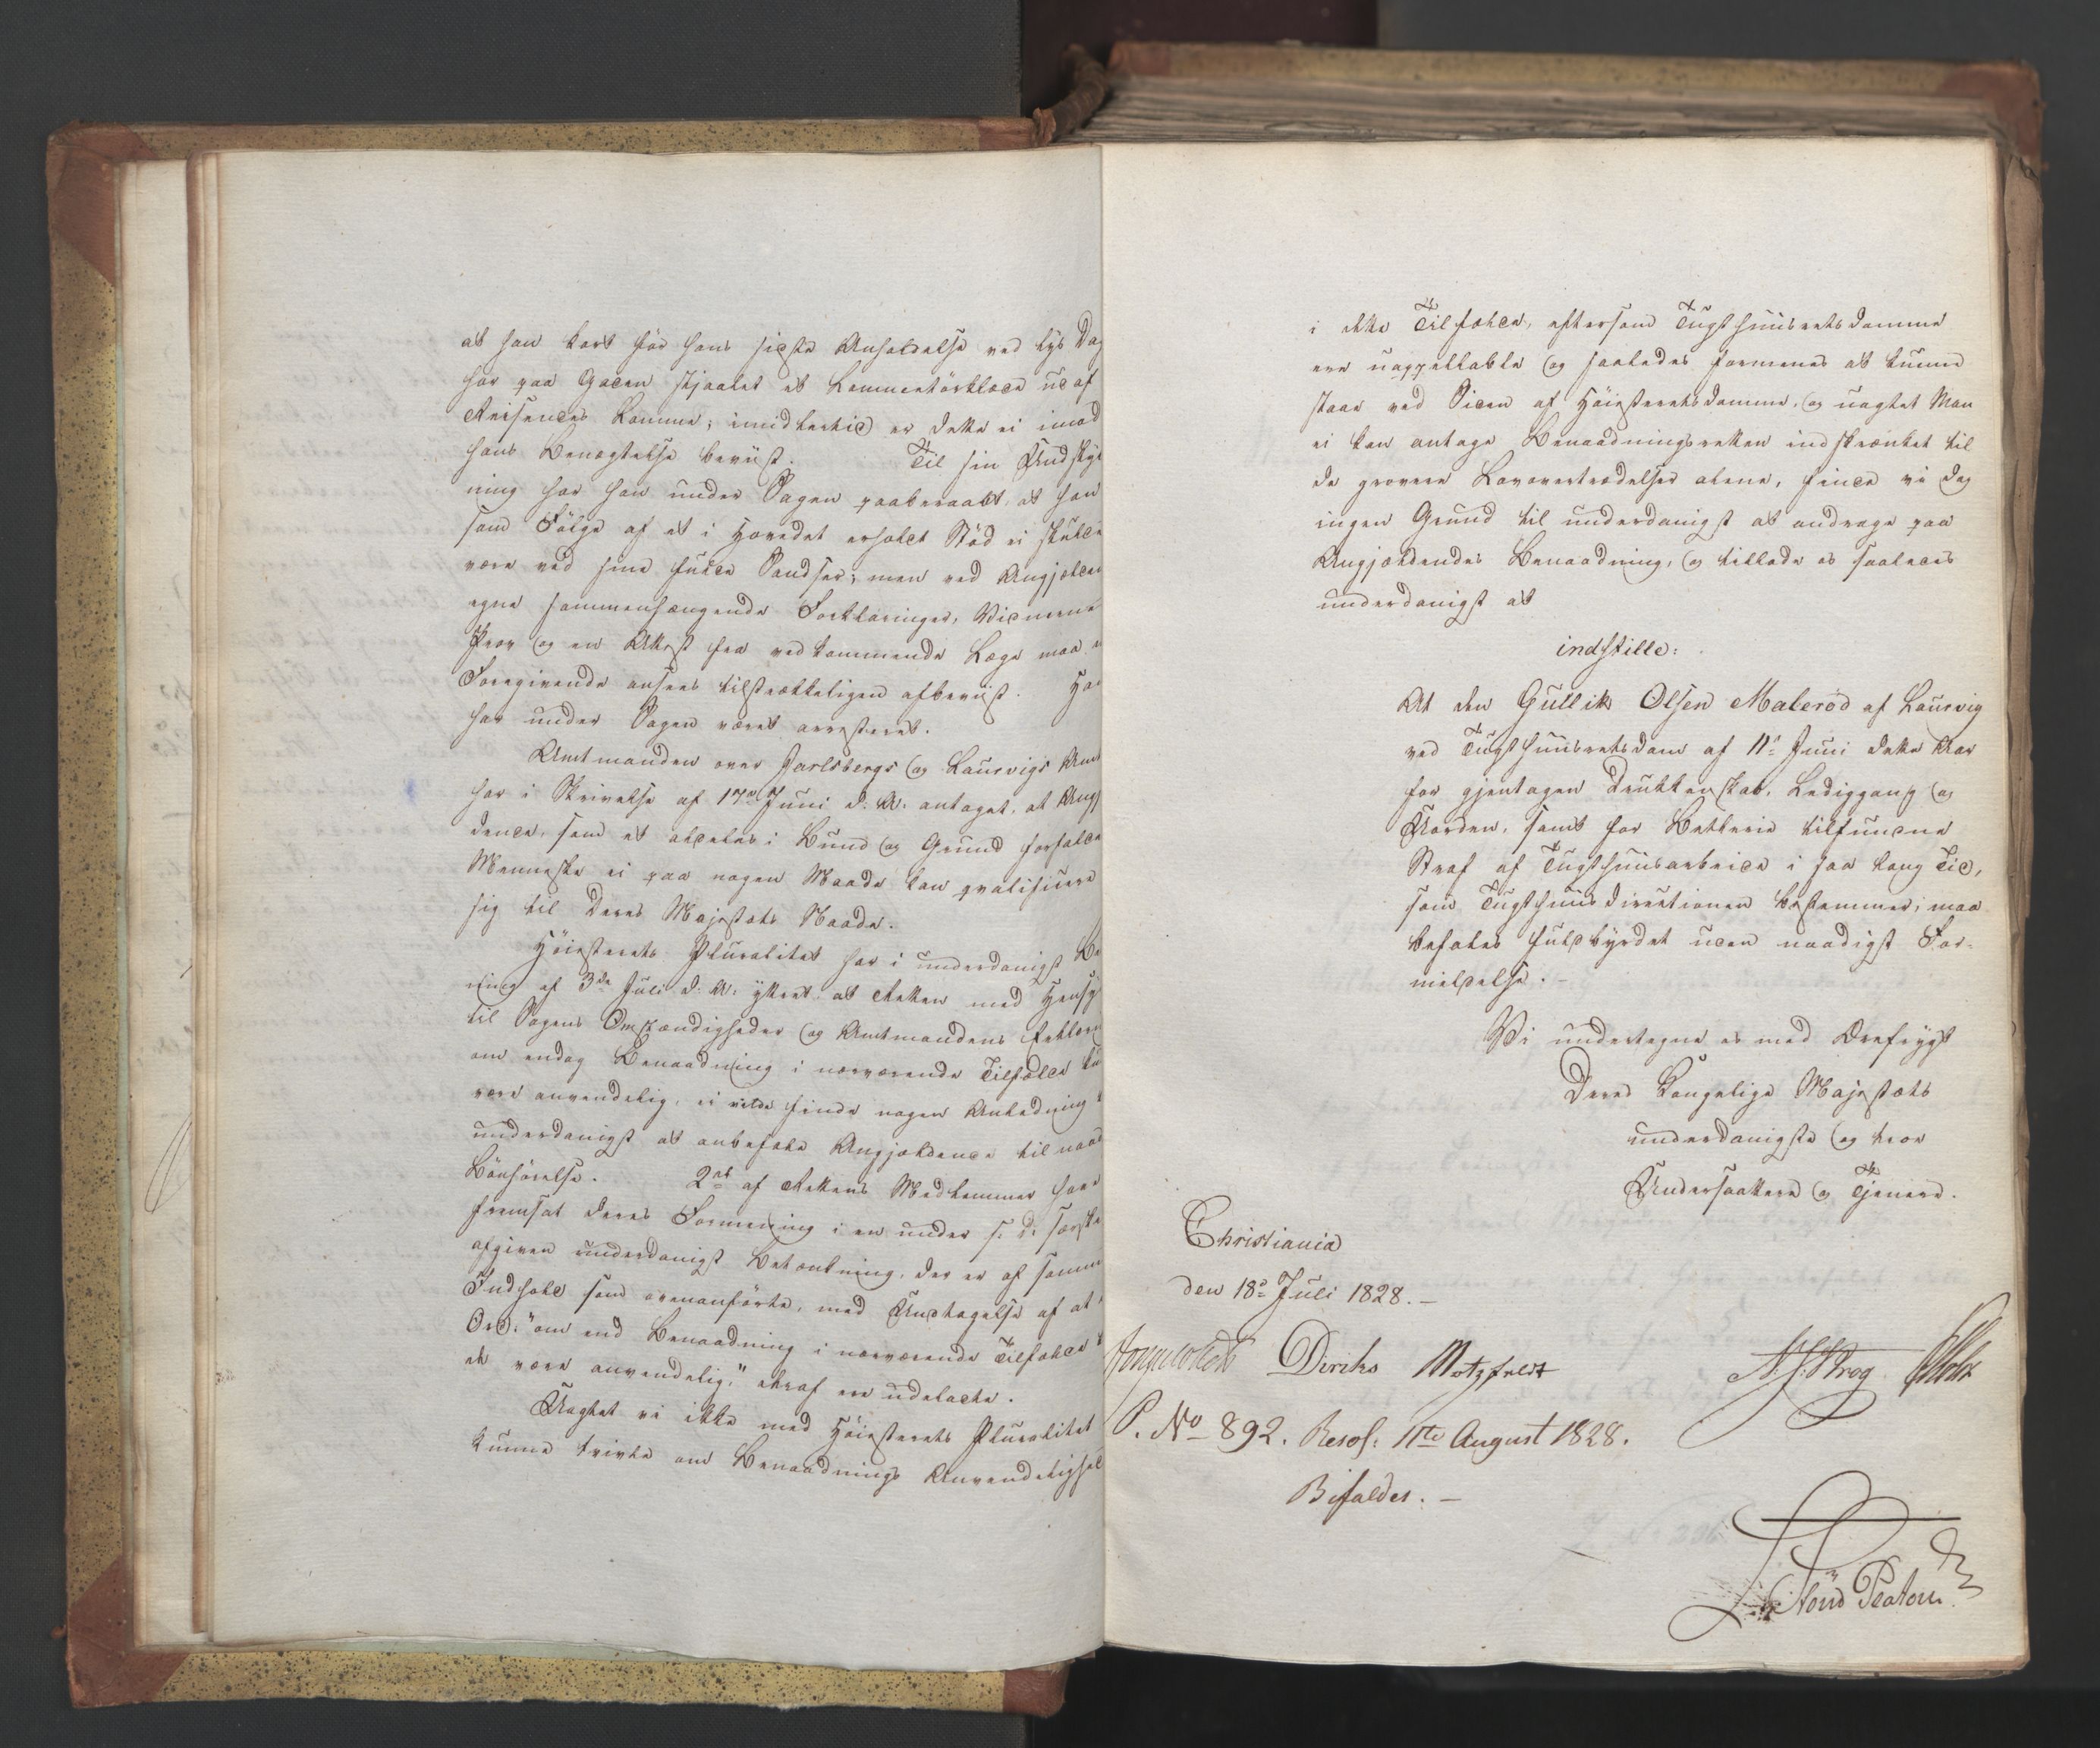 at han kort för hans sidste Anholdelse ved lys Dag
har paa Gaden stjaalet et Lommetörklæde ud af
Reisendes Lomme; imidlertid er dette ei imod
hans Benægtelse beviist. Til sin Undskyld
ning har han under Sagen paaberaabt, at han
som Fölge af et i Hovedet erholdt Stöd ei skulde
være ved sine fulde Sandser; men ved Angjælden
egne sammenhængende Forklaringer, Vidnernes
Prov og en Attest fra vedkommende Læge maa
Foregivende ansees tilstrækkeligen afbeviist. Han
har under Sagen været arresteret.
Amtmanden over Jarlsbergs og Laurvigs Amt
har i Skrivelse af 17de Juni d: A: antaget, at Angj
dende, som et aldeles i Bund og Grund fordærvet
Menneske ei paa nogen Maade kan qvalificere
sig til Deres Majestæts Naade.
Höiesterets Pluralitet har i underdanigst Be
ning af 3de Juli d: A: yttret: at Retten med Hensyn
til Sagens Omstændigheder og Amtmandens Erklæring
om endog Benaadning i nærværende Tilfælde ku
være anvendelig, ei vilde finde nogen Anledning
underdanigst at anbefale Angjældende til naad
Bönhörelse. 2de af Rettens Medlemmer have
fremsat deres Formening i en under s: D: særskil
afgiven underdanigst Betænkning, der er af samme
Indhold som ovenanförte, med Undtagelse af at
Ord: "om end Benaadning i nærværende Tilfælde
de være anvendelig," deraf ere udeladte.
Uagtet vi ikke med Höiesterets Pluralitet
kunne tvivle om Benaadnings Anvendelighed
i dette Tilfælde, eftersom Tugthuusretsdomme
ere uappellable og saaledes formenes at kunne
staae ved Siden af Höiesteretsdomme, og uagtet Man
ei kan antage Benaadningsretten indskrænket til
de grovere Lovovertrædelser alene, finde vi dog
ingen Grund til underdanigst at andrage paa
Angjældendes Benaadning, og tillade os saaledes
underdanigst at
indstille:
At den Gullik Olsen Maleröd af Laurvig
ved Tugthuusretsdom af 11te Juni dette Aar
for gjentagen Drukkenskab, Lediggang og
Uorden, samt for Betlerie tilfundne
Straf af Tugthuusarbeide i saa lang Tid,
som Tugthuusdirectionen bestemmer, maa
befales fuldbyrdet uden naadigst For-
mildelse. -
Vi undertegne os med Ærefrygt
Deres Kongelige Majestæts
underdanigste og troe
Undersaatter og Tjenere.
Christiania
den 18de Juli 1828. -
Diriks Motzfeldt N. J. Krog Holst
P. No 892. Resol: 11te August 1828.
Bifaldes. -